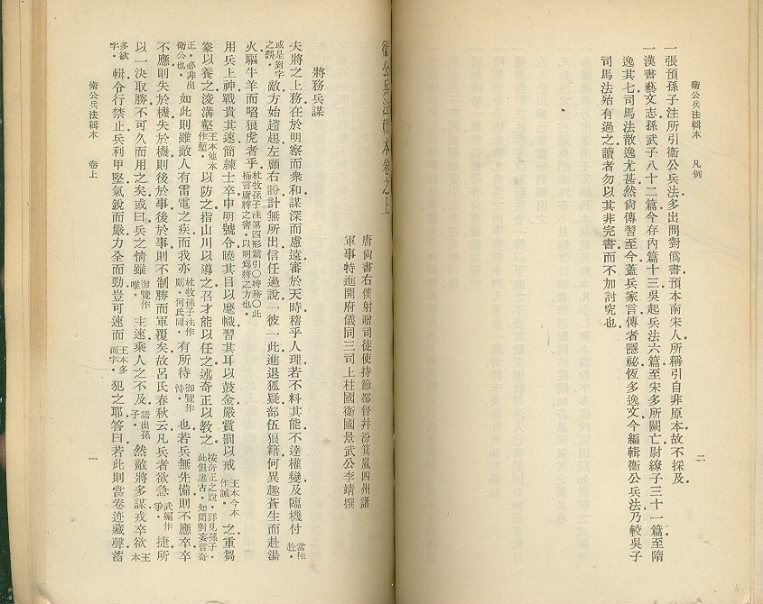 衛公兵法輯本 凡例
二
一張預孫子注所引衛公兵法多出問對僞書預本南宋人所稱引自非原本故不採及
一漢書藝文志孫武子八十二篇今存內篇十三吳起兵法六篇至宋多所闕亡尉繚子三十一篇至隋
逸其七司馬法散逸尤甚然尙傳習至今蓋兵家言傳者旣祕恆多逸文今編輯衛公兵法乃較吳子
司馬法殆有過之讀者勿以其非完書而不加討究也
衛公兵法輯本卷之上
唐尙書右僕射贈司徒使持節都督幷汾箕嵐四州諸
軍事特進開府儀同三司上柱國衛國景武公李靖撰
將務兵謀
夫將之上務在於明察而衆和謀深而慮遠審於天時稽乎人理若不料其能不達權變及臨機付當作赴
或是到字之誤敵方始趑趄左顧右盼計無所出信任過說一彼一此進退狐疑部伍狼籍何異趣蒼生而赴湯
火驅牛羊而啗狼虎者乎杜牧孫子注第四形篇引〇將務〇此極言庸將之害以明爲將之方也
用兵上神戰貴其速簡練士卒申明號令曉其目以麾幟習其耳以鼓金嚴賞罰以戒王本今本作誡之重芻
豢以養之浚溝塹王本他本作壍以防之指山川以導之召才能以任之述奇正以敎之按奇正之說詳見孫子此但渾言
正必非出衛公也如此則雖敵人有雷電之疾而我亦杜牧孫子注作則何氏同有所待御覽作恃也若兵無先備則不應卒卒
不應則失於機失於機則後於事後於事則不制勝而軍覆矣故呂氏春秋云凡兵者欲急武編作爭捷所
以一決取勝不可久而用之矣或曰兵之情雖御覽作唯主速乘人之不及語出孫子然敵將多謀戎卒欲王本
多欲字輯令行禁止兵利甲堅氣銳而嚴力全而勁豈可速而王本多而字犯之耶答曰若此則當卷迹藏聲蓄
衛公兵法輯本 卷上
一